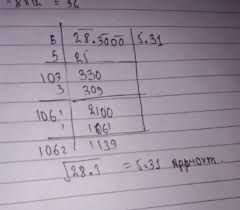 = 8x12 = 36
5 | 28.3000 | 5.31
5 | 25
103 | 330
3 | 309
1061 | 2100
1 | 1061
1062 | 1139
√28.3 = 5.31 Approxt.